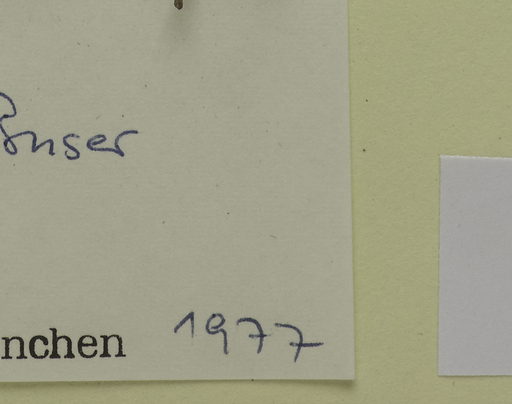 onser
nchen 1977